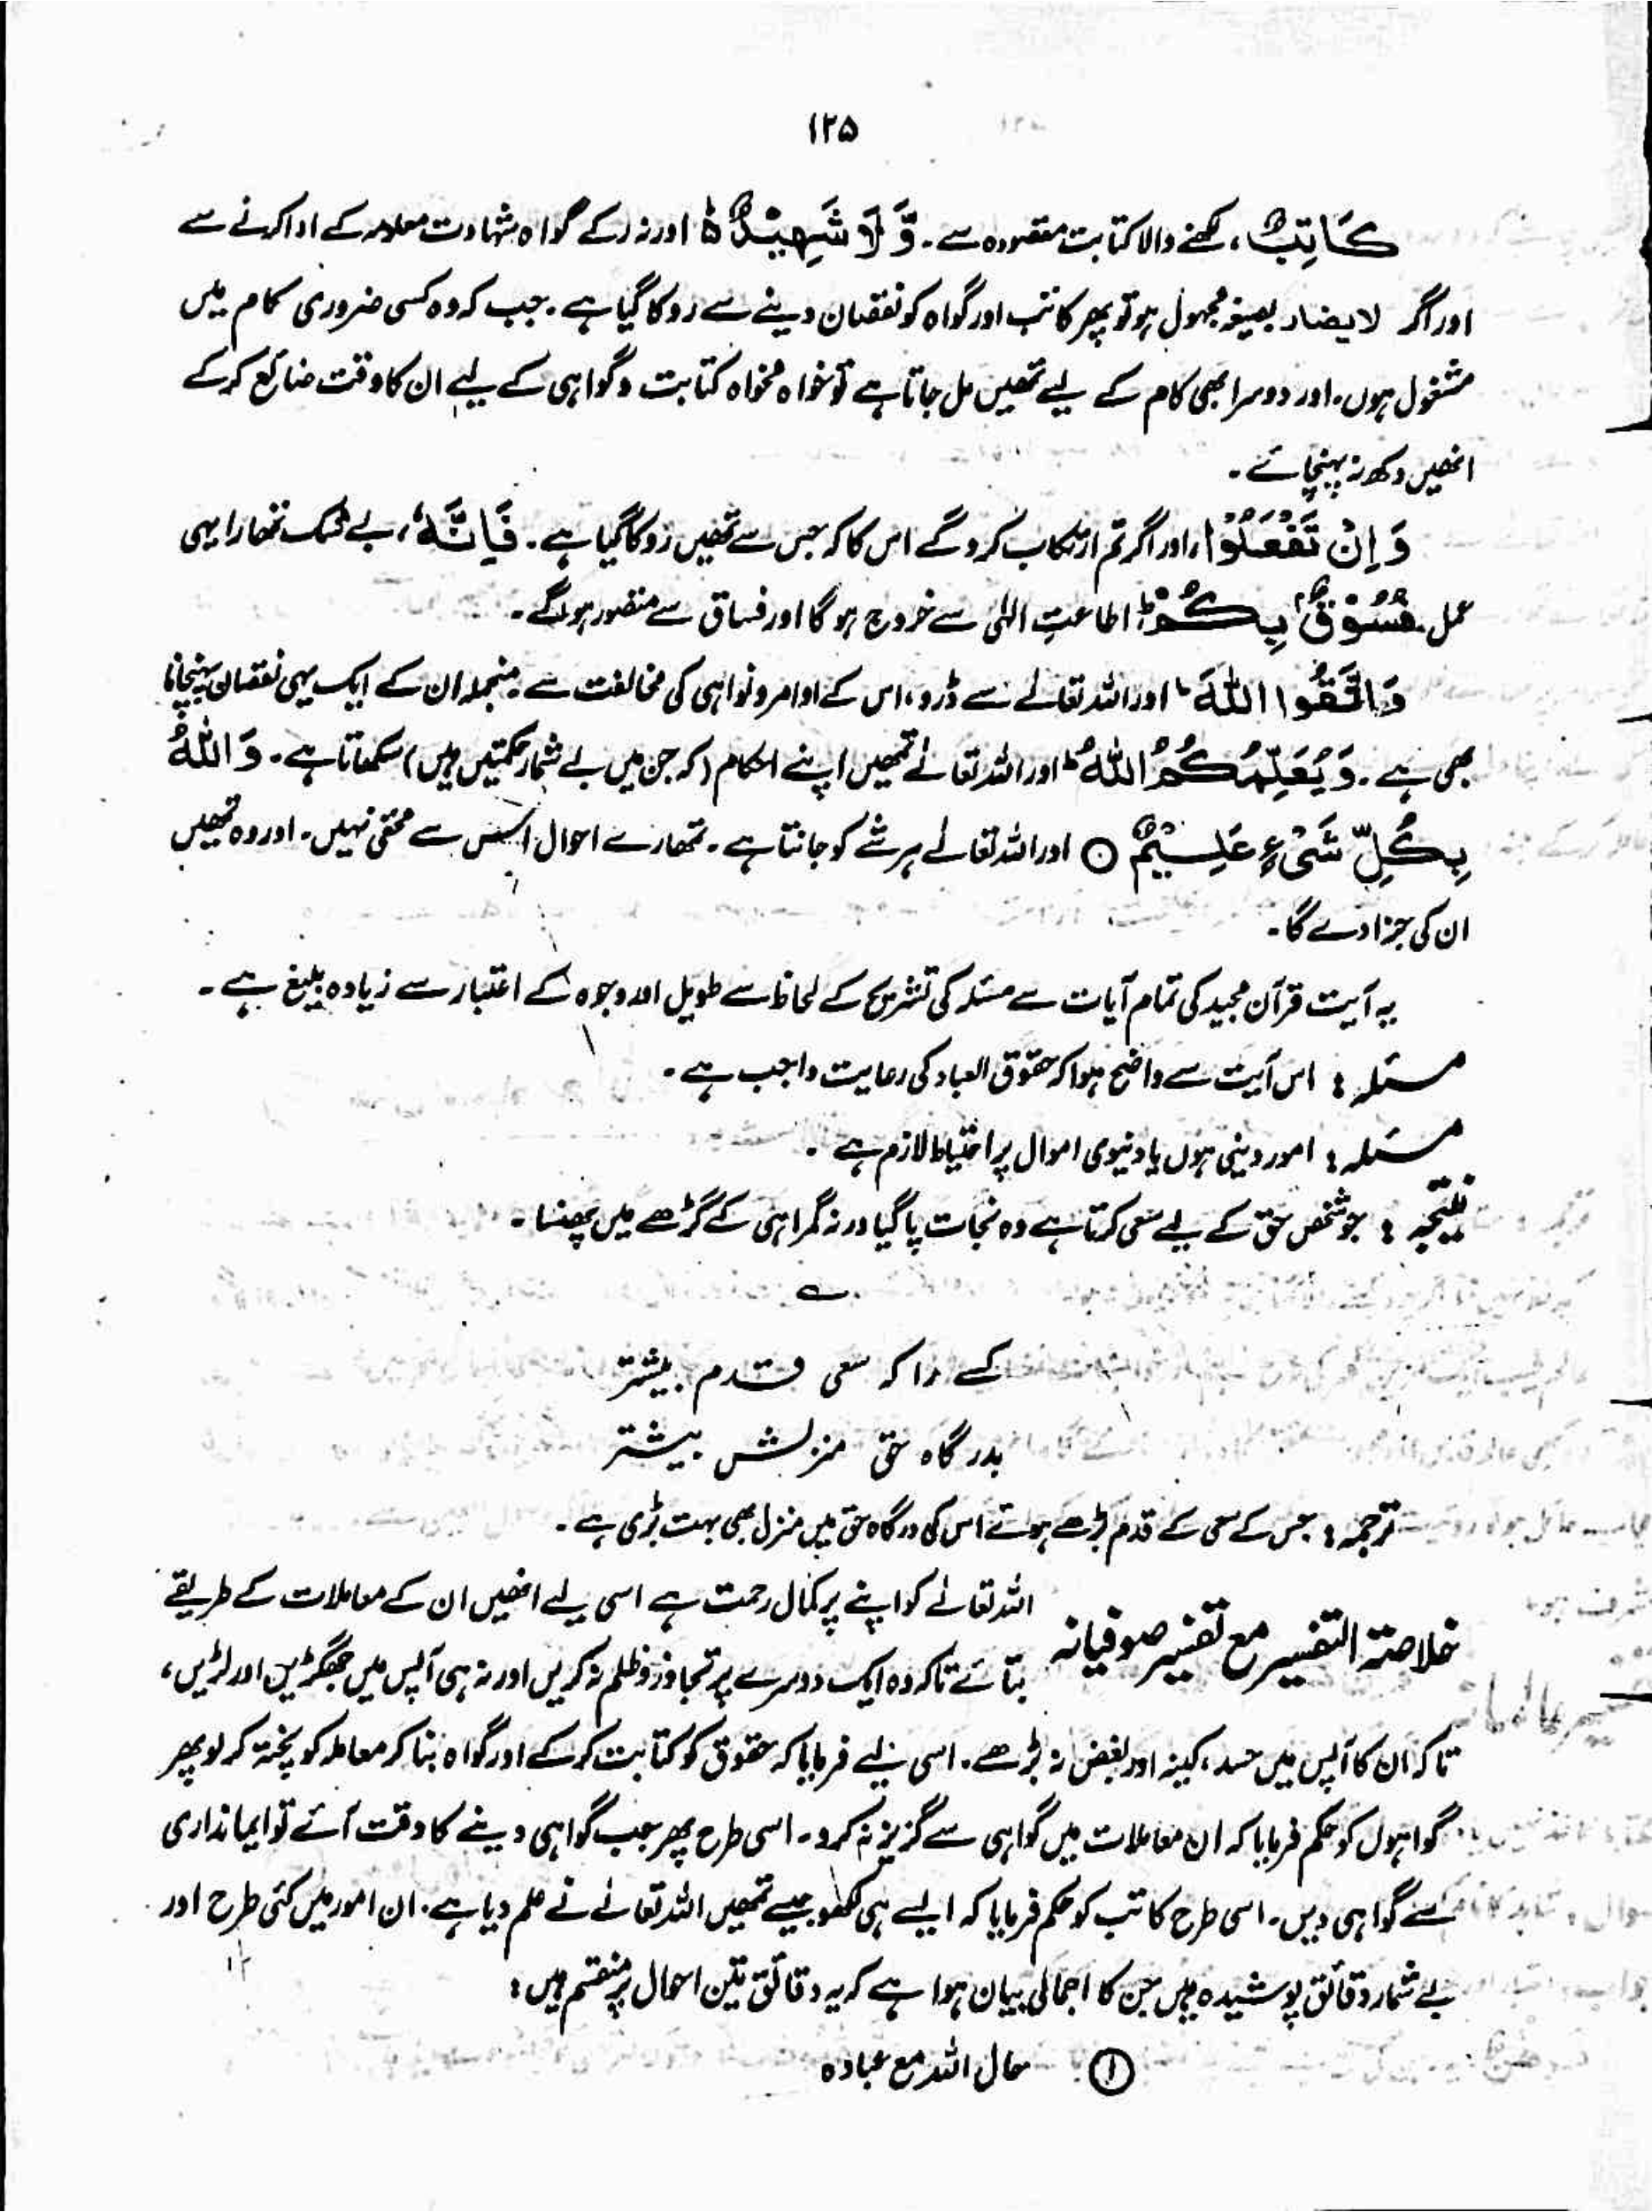 ۱۲۵
كَاتِبٌ، لکھنے والا کتابت مقصودہ سے۔ وَّلَا شَهِيْدٌ ط اور نہ رکے گواہ شہادت معلومہ کے ادا کرنے سے
اور اگر لایضار بصیغہ مجہول ہو تو پھر کاتب اور گواہ کو نقصان دینے سے روکا گیا ہے۔ جب کہ وہ کسی ضروری کام میں
مشغول ہوں۔ اور دوسرا بھی کام کے لیے تمھیں مل جاتا ہے تو خواہ مخواہ کتابت و گواہی کے لیے ان کا وقت ضائع کر کے
انھیں دکھ نہ پہنچائے۔
وَاِنْ تَفْعَلُوْا، اور اگر تم ارتکاب کرو گے اس کا کہ جس سے تمھیں روکا گیا ہے۔ فَاِنَّهٗ، بے شک تمھارا یہی
عمل فُسُوْقٌۢ بِكُمْ ط اطاعتِ الٰہی سے خروج ہو گا اور فساق سے متصور ہو گے۔
وَاتَّقُوا اللّٰهَ ط اور اللہ تعالےٰ سے ڈرو، اس کے اوامر و نواہی کی مخالفت سے منجملہ ان کے ایک یہی نقصان پہنچانا
بھی ہے۔ وَيُعَلِّمُكُمُ اللّٰهُ ط اور اللہ تعالےٰ تمھیں اپنے احکام (کہ جن میں بے شمار حکمتیں ہیں) سکھاتا ہے۔ وَاللّٰهُ
بِكُلِّ شَىْءٍ عَلِيْمٌ ○ اور اللہ تعالےٰ ہر شے کو جانتا ہے۔ تمھارے احوال اس سے مخفی نہیں۔ اور وہ تمھیں
ان کی جزا دے گا۔
یہ آیت قرآن مجید کی تمام آیات سے مسئلہ کی تشریح کے لحاظ سے طویل اور وجوہ کے اعتبار سے زیادہ بلیغ ہے۔
مسئلہ : اس آیت سے واضح ہوا کہ حقوق العباد کی رعایت واجب ہے۔
مسئلہ : امور دینی ہوں یا دنیوی اموال پر احتیاط لازم ہے۔
نتیجہ : جو شخص حق کے لیے سعی کرتا ہے وہ نجات پا گیا ورنہ گمراہی کے گڑھے میں پھنسا۔
؎
کسے را کہ سعی قدم بیشتر
بدرگاہ حق منزلش بیشتر
ترجمہ : جس کے سعی کے قدم بڑھے ہوئے اس کی درگاہ حق میں منزل بھی بہت بڑی ہے۔
خلاصۃ التفسیر مع تفسیر صوفیانہ اللہ تعالےٰ کو اپنے پر کمال رحمت ہے اسی لیے انھیں ان کے معاملات کے طریقے
بتائے تاکہ وہ ایک دوسرے پر تجاوز و ظلم نہ کریں اور نہ ہی آپس میں جھگڑیں اور لڑیں،
تاکہ ان کا آپس میں حسد، کینہ اور بغض نہ بڑھے۔ اسی لیے فرمایا کہ حقوق کو کتابت کر کے اور گواہ بنا کر معاملہ کو پختہ کر لو پھر
گواہوں کو حکم فرمایا کہ ان معاملات میں گواہی سے گریز نہ کرو۔ اسی طرح پھر جب گواہی دینے کا وقت آئے تو ایمانداری
سے گواہی دیں۔ اسی طرح کاتب کو حکم فرمایا کہ ایسے ہی لکھو جیسے تمھیں اللہ تعالےٰ نے علم دیا ہے۔ ان امور میں کئی طرح اور
بے شمار دقائق پوشیدہ ہیں جن کا اجمالی بیان ہوا ہے کہ یہ دقائق تین احوال پر منقسم ہیں :
① حال اللہ مع عبادہ